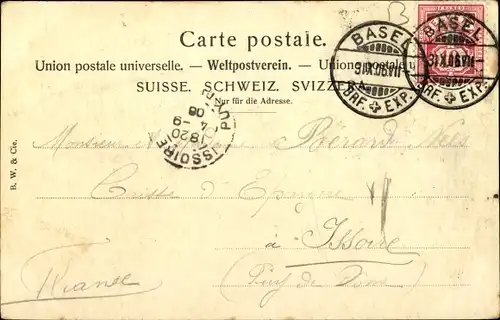 Carte postale.
Union postale universelle. — Weltpostverein. — Unione postale u
SUISSE. SCHWEIZ. SVIZZE
Nur für die Adresse.
BASEL
BRF. EXP.
BASEL
BRF. EXP.
ISSOIRE
PUY-DE
18 20
4 - 9
06
R. W. & Cie.
Monsieur
Caisse d'Epargne
à Issoire
(Puy de Dôme)
France